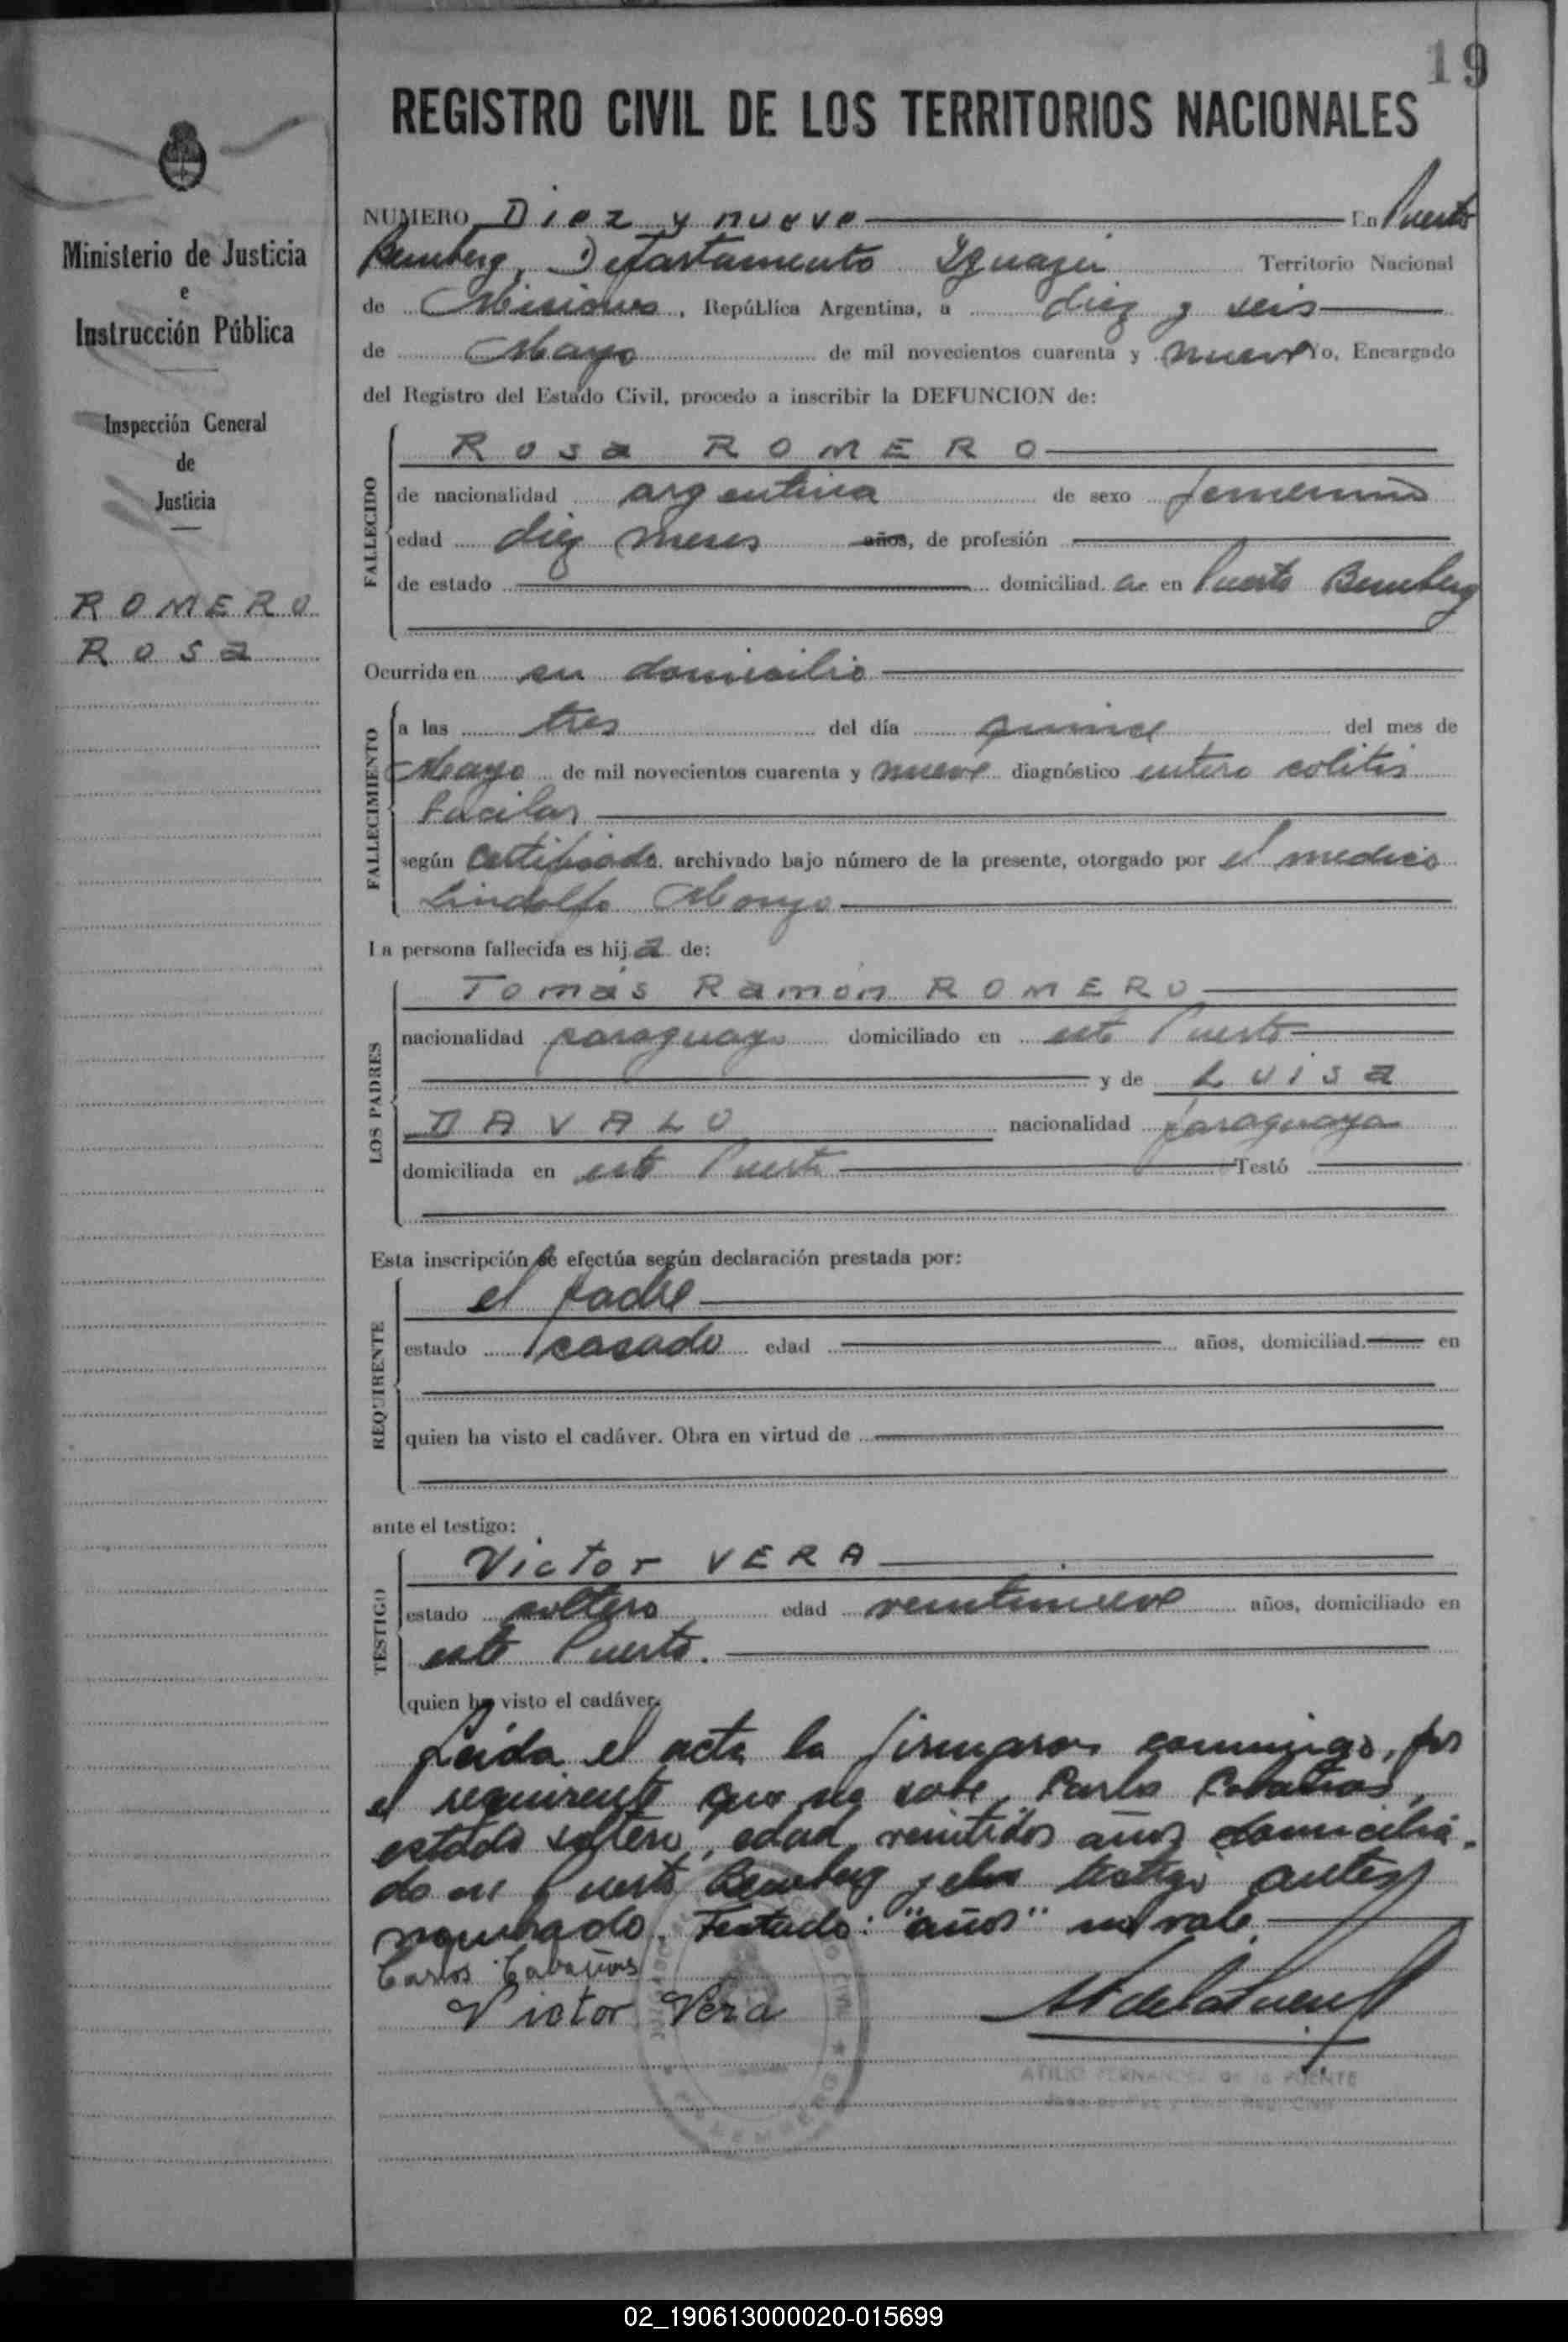 19
REGISTRO CIVIL DE LOS TERRITORIOS NACIONALES
Ministerio de Justicia
e
Instrucción Pública
Inspección General
de
Justicia
ROMERO
Rosa
NUMERO Diez y nueve En Puerto
Bemberg, Departamento Iguazú Territorio Nacional
de Misiones, República Argentina, a diez y seis
de Mayo de mil novecientos cuarenta y nueve Yo, Encargado
del Registro del Estado Civil, procedo a inscribir la DEFUNCION de:
FALLECIDO
Rosa ROMERO
de nacionalidad argentina de sexo femenino
edad diez meses años, de profesión
de estado domiciliad a en Puerto Bemberg
Ocurrida en su domicilio
FALLECIMIENTO
a las tres del día quince del mes de
Mayo de mil novecientos cuarenta y nueve diagnóstico entero colitis
bacilar
según certificado archivado bajo número de la presente, otorgado por el medico
Lindolfo
La persona fallecida es hij a de:
LOS PADRES
Tomás Ramón ROMERO
nacionalidad paraguayo domiciliado en este Puerto
y de Luisa
DAVALO nacionalidad paraguaya
domiciliada en este Puerto Testó
Esta inscripción se efectúa según declaración prestada por:
REQUIRENTE
el padre
estado casado edad años, domiciliad en
quien ha visto el cadáver. Obra en virtud de
ante el testigo:
TESTIGO
Victor VERA
estado soltero edad veintinueve años, domiciliado en
este Puerto.
quien ha visto el cadáver,
Leída el acta la firmaron conmigo, por
el requirente que no sabe, Carlos Cabañas,
estado soltero, edad veintidós años domicilia-
do en Puerto Bemberg y el testigo antes
nombrado. Testado: "años" no vale.
Carlos Cabañas
Victor Vera
ATILIO FERNANDEZ de la PUENTE
02_190613000020-015699